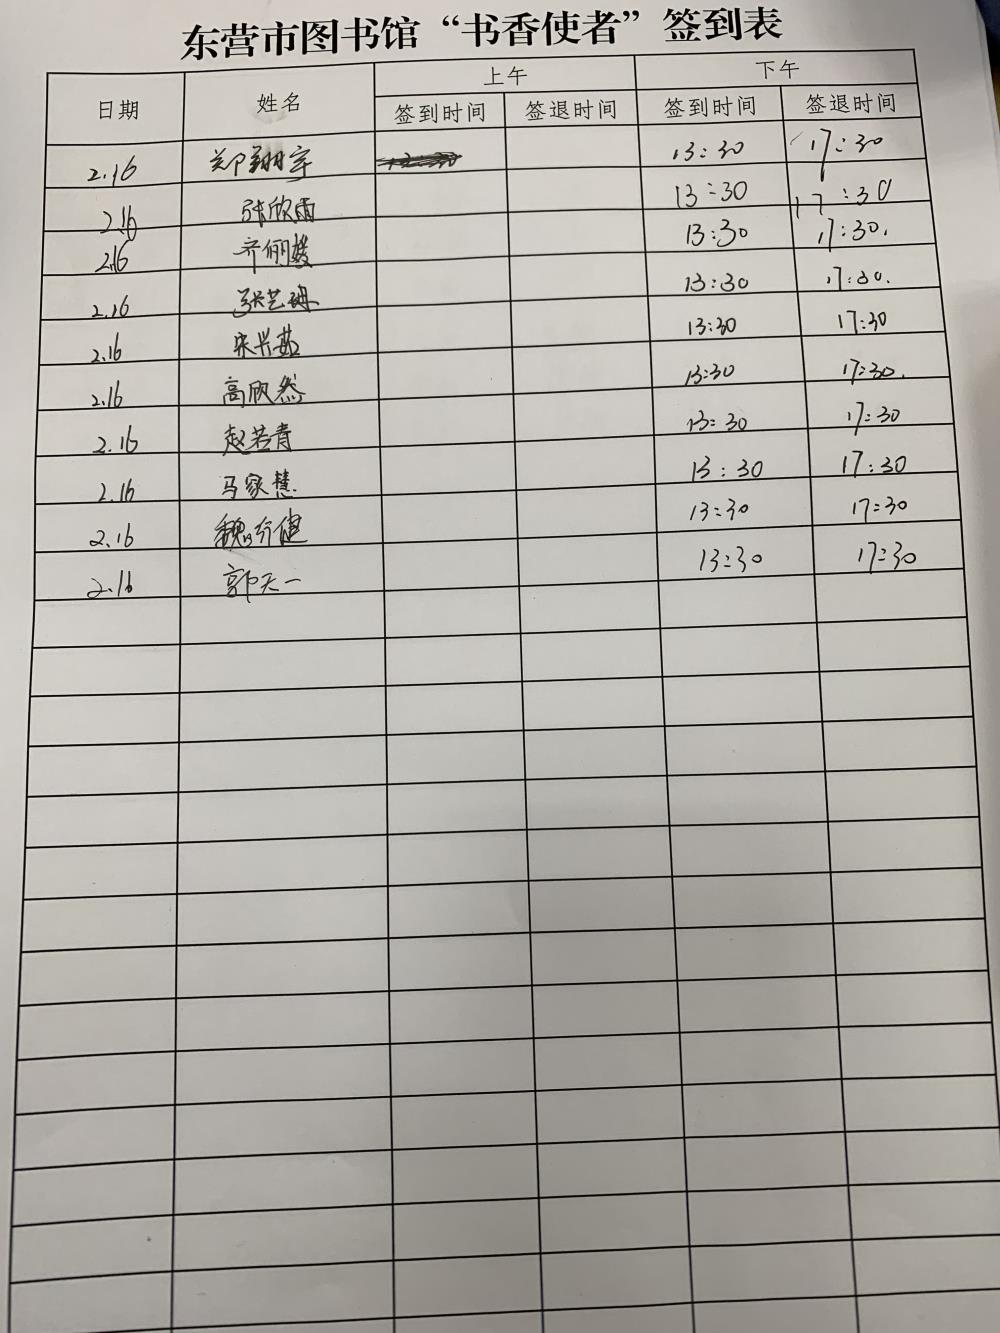 东营市图书馆“书香使者”签到表
日期 姓名 上午 下午
签到时间 签退时间 签到时间 签退时间
2.16 郑翔宇 13:30 17:30
2.16 张欣雨 13:30 17:30
2.16 齐俪媛 13:30 17:30.
2.16 张艺珊 13:30 17:30.
2.16 宋兴茹 13:30 17:30
2.16 高欣然 13:30 17:30.
2.16 赵若青 13:30 17:30
2.16 马家慧 13:30 17:30
2.16 魏 健 13:30 17:30
2.16 郭天一 13:30 17:30